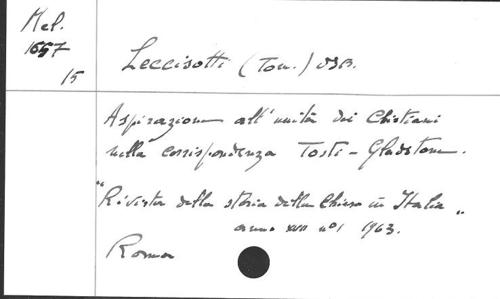 Mel.
1657
15
Leccisotti (Tom.) OSB.
Aspirazione all'unità dei Cristiani
nella corrispondenza Tosti - Gladstone.
"Rivista della storia della Chiesa in Italia"
anno XVII n° 1 1963.
Roma